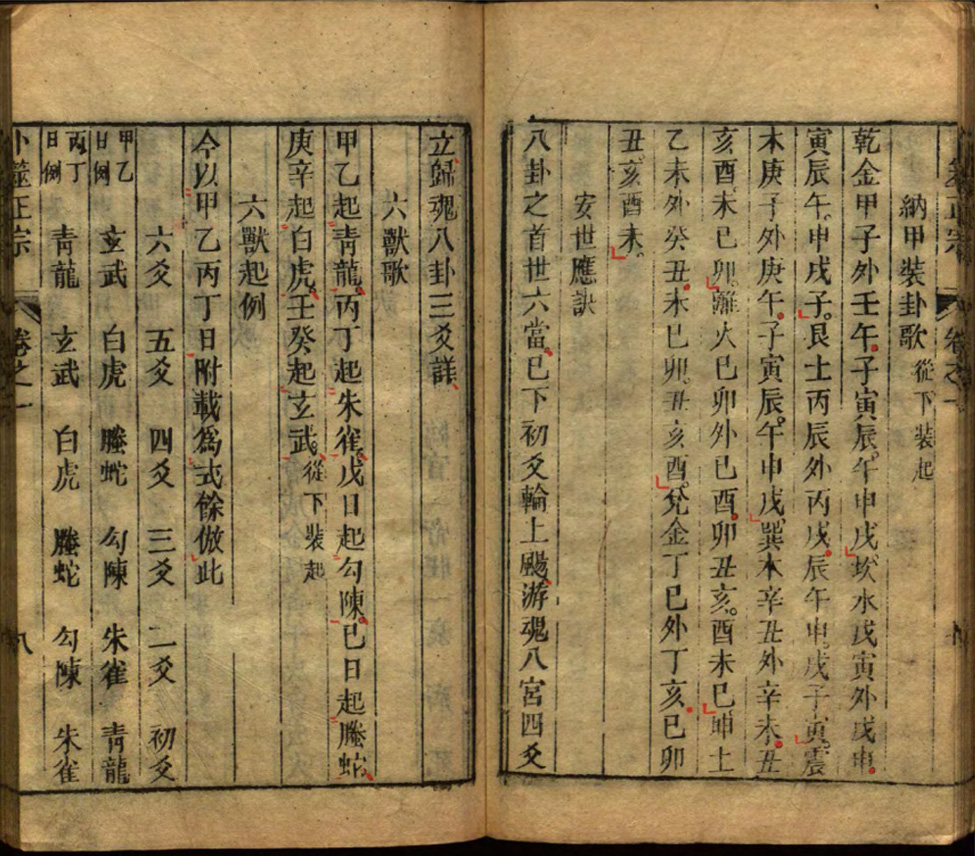 正宗 卷之一
納甲裝卦歌 從下裝起
乾金甲子外壬午子寅辰午申戌坎水戊寅外戊申
寅辰午申戌子艮土丙辰外丙戌辰午申戌子寅震
木庚子外庚午子寅辰午申戌巽木辛丑外辛未丑
亥酉未巳卯離火己卯外己酉卯丑亥酉未巳坤土
乙未外癸丑未巳卯丑亥酉兌金丁巳外丁亥巳卯
丑亥酉未
安世應訣
八卦之首世六當已下初爻輪上颺游魂八宮四爻
立歸魂八卦三爻詳
六獸歌
甲乙起青龍丙丁起朱雀戊日起勾陳己日起螣蛇
庚辛起白虎壬癸起玄武 從下裝起
六獸起例
今以甲乙丙丁日附載為式餘倣此
六爻 五爻 四爻 三爻 二爻 初爻
甲乙日例 玄武 白虎 螣蛇 勾陳 朱雀 青龍
丙丁日例 青龍 玄武 白虎 螣蛇 勾陳 朱雀
卜筮正宗 卷之一 八